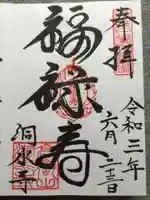 奉拝
令和三年
六月二三日
福禄寿
洞水寺